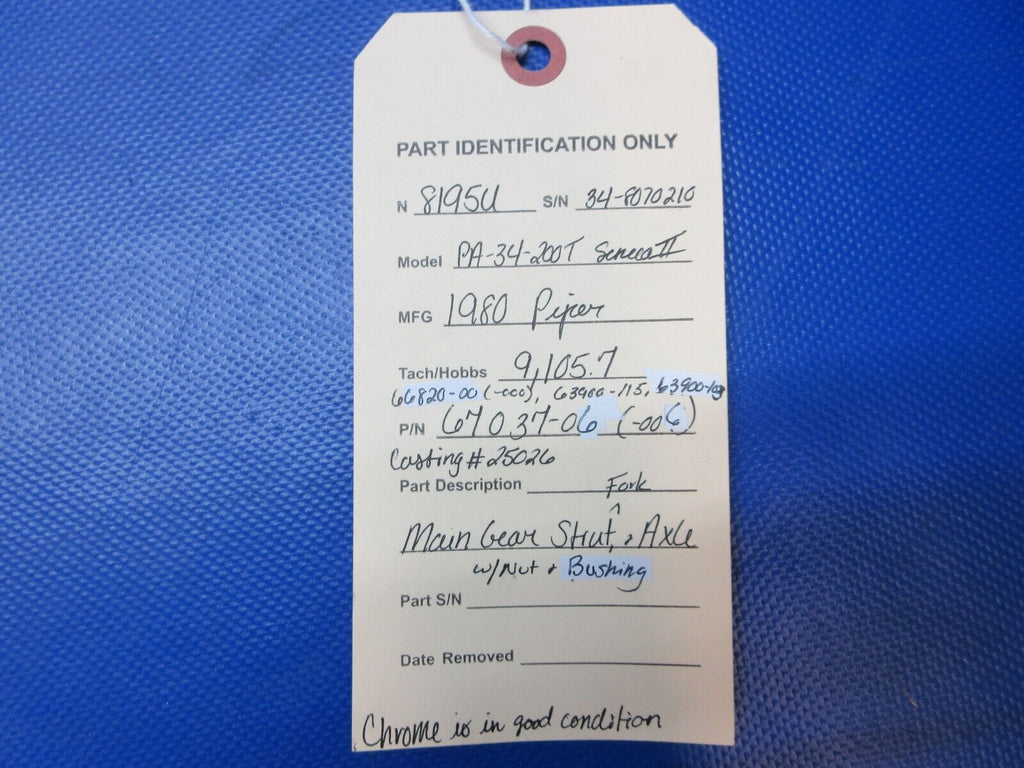 PART IDENTIFICATION ONLY
N 8195U S/N 34-8070210
Model PA-34-200T Seneca II
MFG 1980 Piper
Tach/Hobbs 9,105.7
66820-00 (-000), 63900-115, 63900-109
P/N 67037-06 (-006)
Casting # 25026
Part Description Fork
^
Main Gear Strut, & Axle
w/Nut & Bushing
Part S/N
Date Removed
Chrome is in good condition